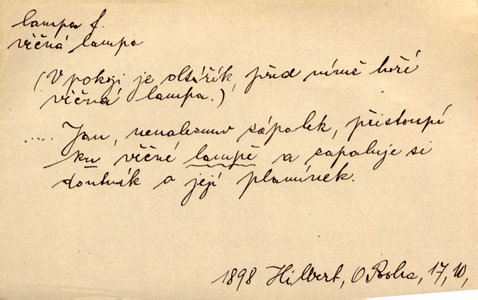 lampa f.
věčná lampa
(V pokoji je oltářík, před nímž hoří
věčná lampa.)
.... Jan, nenalesnuv zápalek, přistoupí
ku věčné lampě a zapaluje si
doutník o její plamínek.
1898 Hilbert, O Boha, 17, 10,